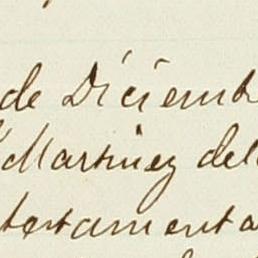 de Diciemb
Martinez del
testamenta